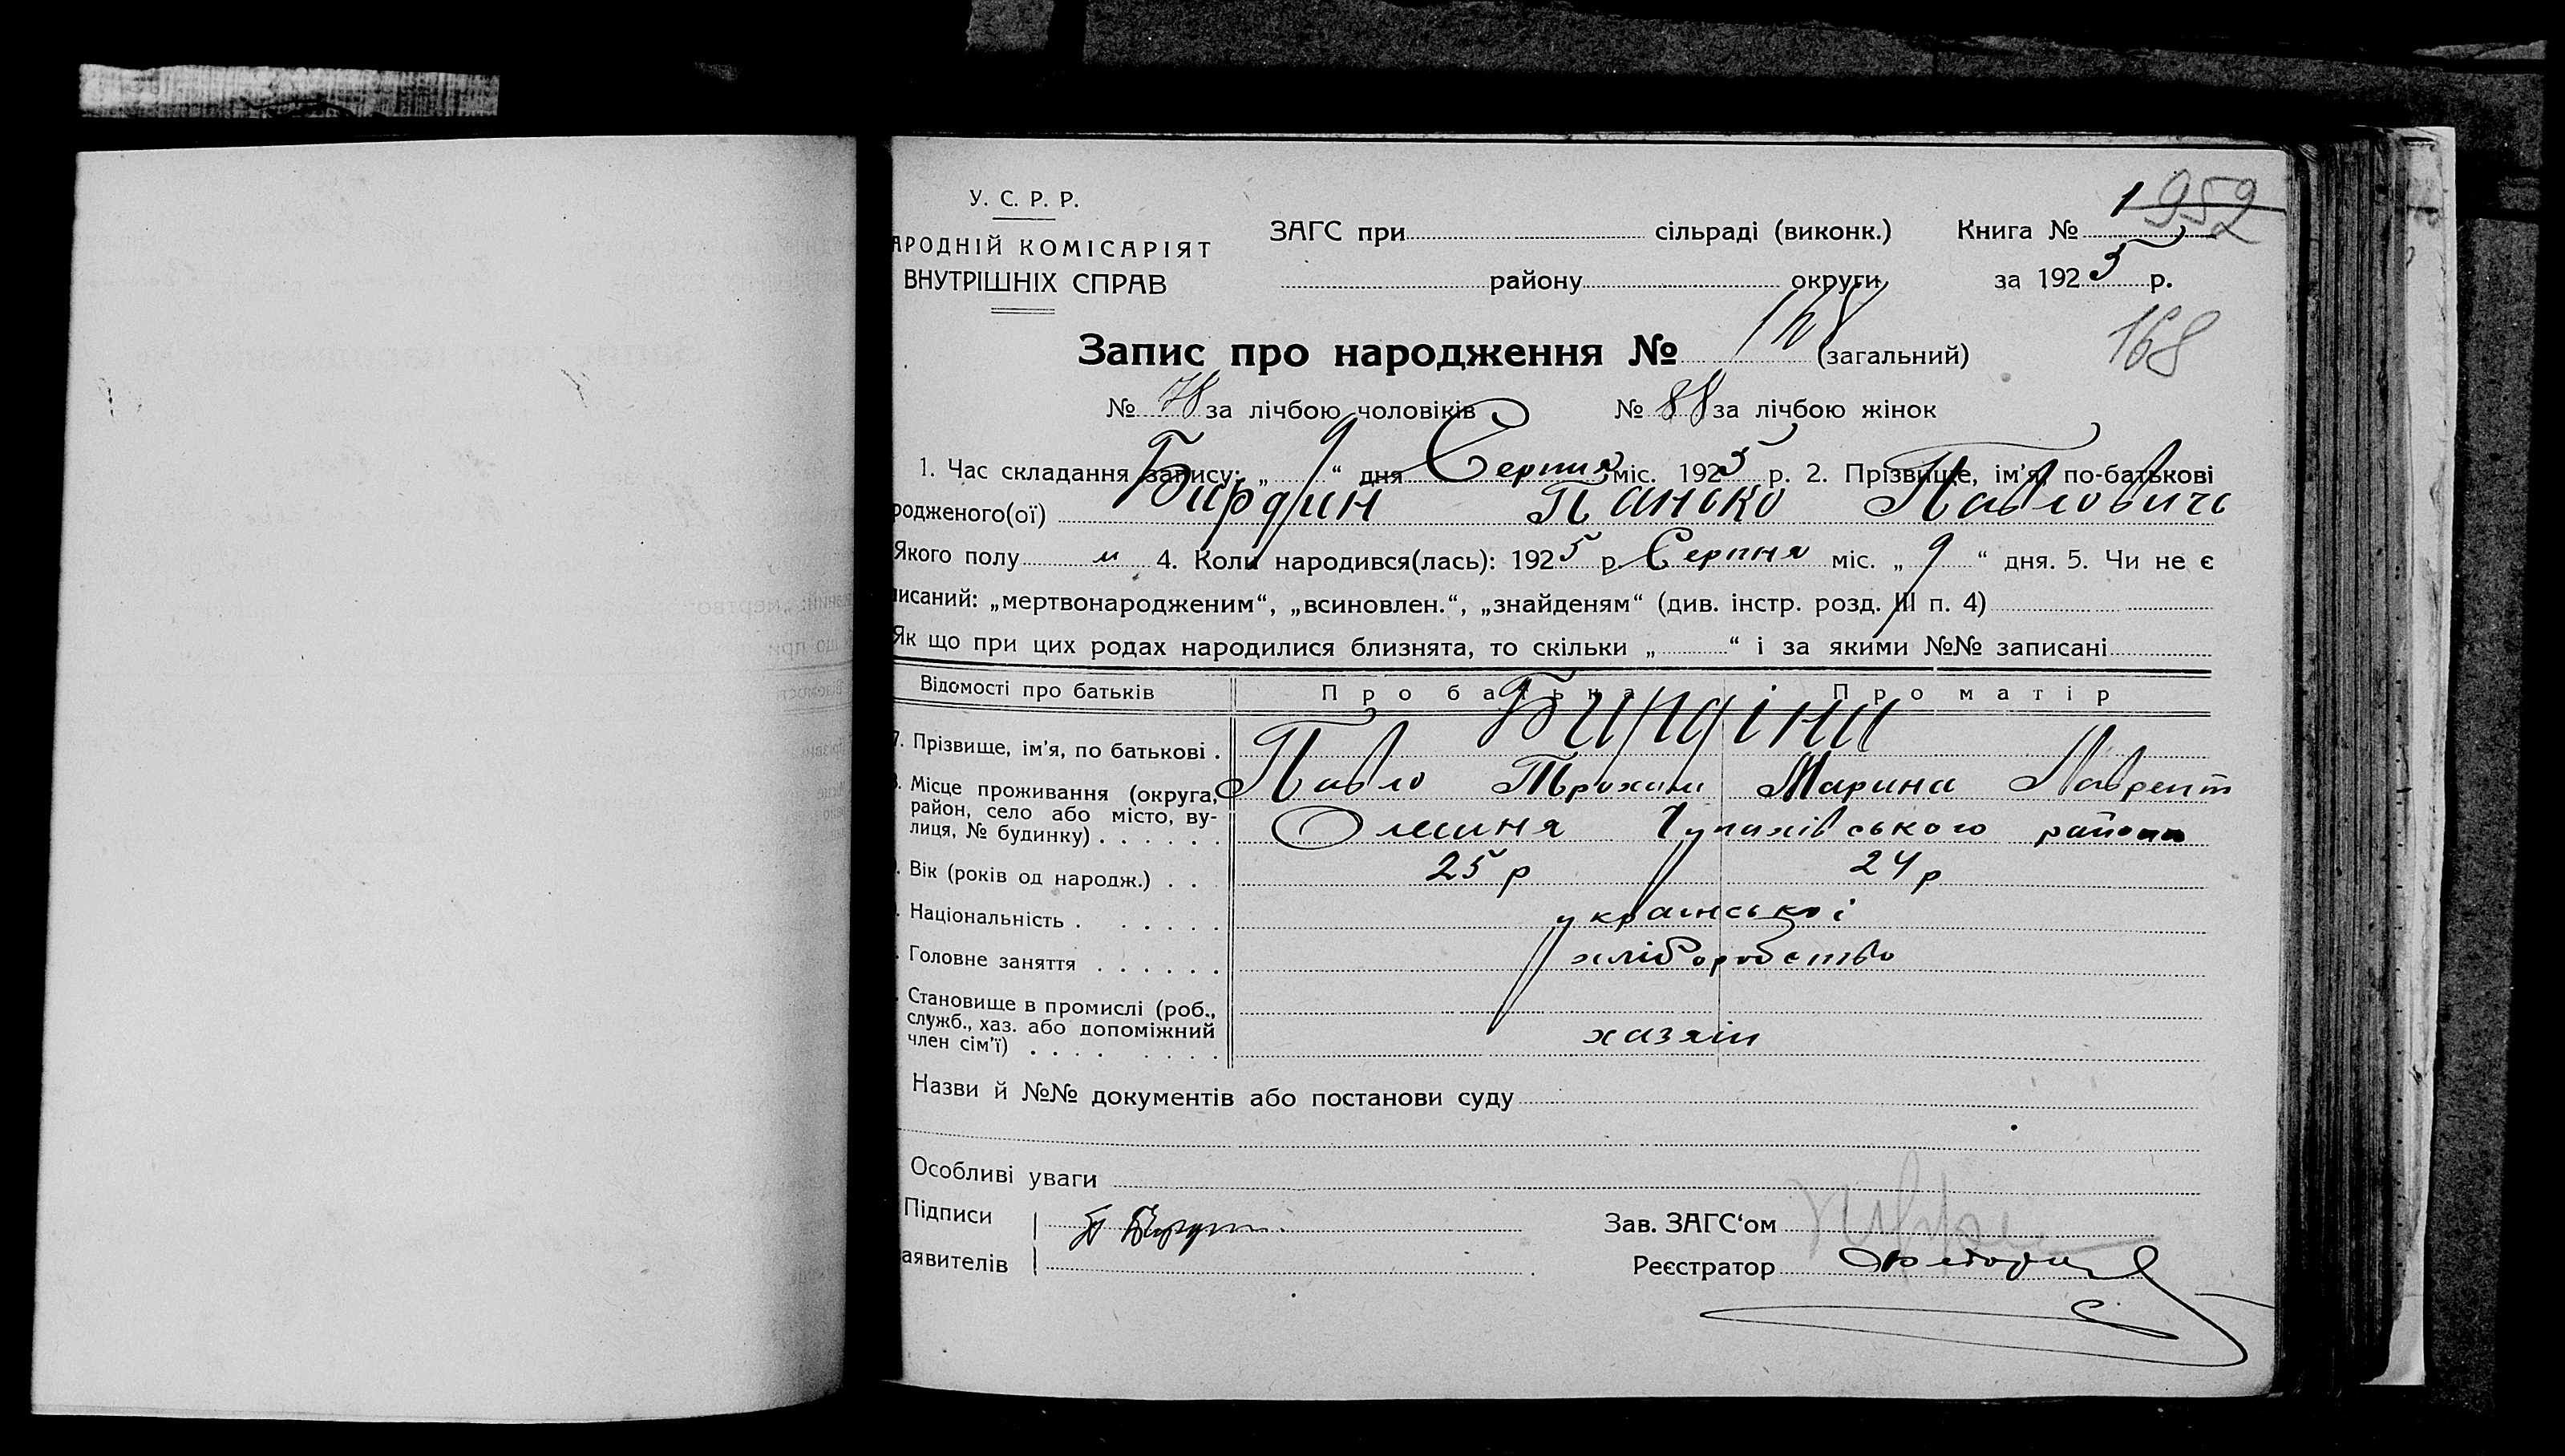 У. С. Р. Р.
АРОДНІЙ КОМІСАРІЯТ
ВНУТРІШНІХ СПРАВ
ЗАГС при сільраді (виконк.) Книга № 1 952
району округи за 1925 р.
Запис про народження № 168 (загальний) 168
№ 78 за лічбою чоловіків № 88 за лічбою жінок
1. Час складання запису: „ 9 “ дня Серпня міс. 1925 р. 2. Прізвище, ім’я, по-батькові
родженого(ої) Бирдин Панько Павловичь
Якого полу м 4. Коли народився(лась): 1925 р. Серпня міс. „ 9 “ дня. 5. Чи не є
писаний: „мертвонародженим“, „всиновлен.“, „знайденям“ (див. інстр. розд. III п. 4)
Як що при цих родах народилися близнята, то скільки „ “ і за якими №№ записані
Відомості про батьків Про батька Про матір
7. Прізвище, ім’я, по батькові . Бирдіни
Павло Трохим Марина Лаврент
8. Місце проживання (округа, район, село або місто, ву-лиця, № будинку) . . . . . . Олешня Чупахівського району
. Вік (років од народж.) . . 25 р 24 р
. Національність . . . . . . української
. Головне заняття . . . . . . хліборобство
Становище в промислі (роб., служб., хаз. або допоміжний член сім’ї) . . . . . . . . хазяін
Назви й №№ документів або постанови суду
Особливі уваги
Підписи Зав. ЗАГС‘ом
аявителів Реєстратор